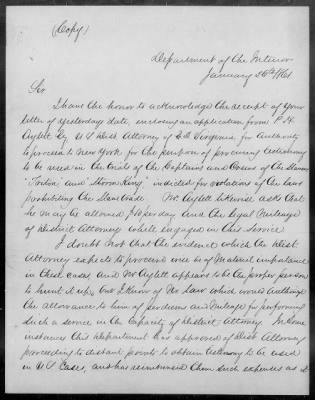 (Copy)
Department of the Interior
January 26th 1861
Sir
I have the honor to acknowledge the receipt of your
letter of yesterdays date, enclosing an application from P. H.
Aylett Esq U S Dist Attorney of E D Virginia for authority
to proceed to New York for the purpose of procuring testimony
to be used in the trials of the Captains and Crews of the Slavers
"Storm King" indicted for violations of the laws
prohibiting the Slave trade. Mr Aylett likewise asks that
he may be allowed per day and the legal mileage
of District Attorney while engaged in this service
I doubt not that the evidence which the Dist
Attorney expects to procure will be of material importance
in these cases, and Mr Aylett appears to be the proper person
to hunt it up, but I know of no law which would authorize
the allowance to him of per diems and mileage for performing
such a service in the capacity of District Attorney. In some
instances this Department has approved of Dist Attorneys
proceeding to distant points to obtain testimony to be used
in U S Cases, and has reimbursed them such expenses as